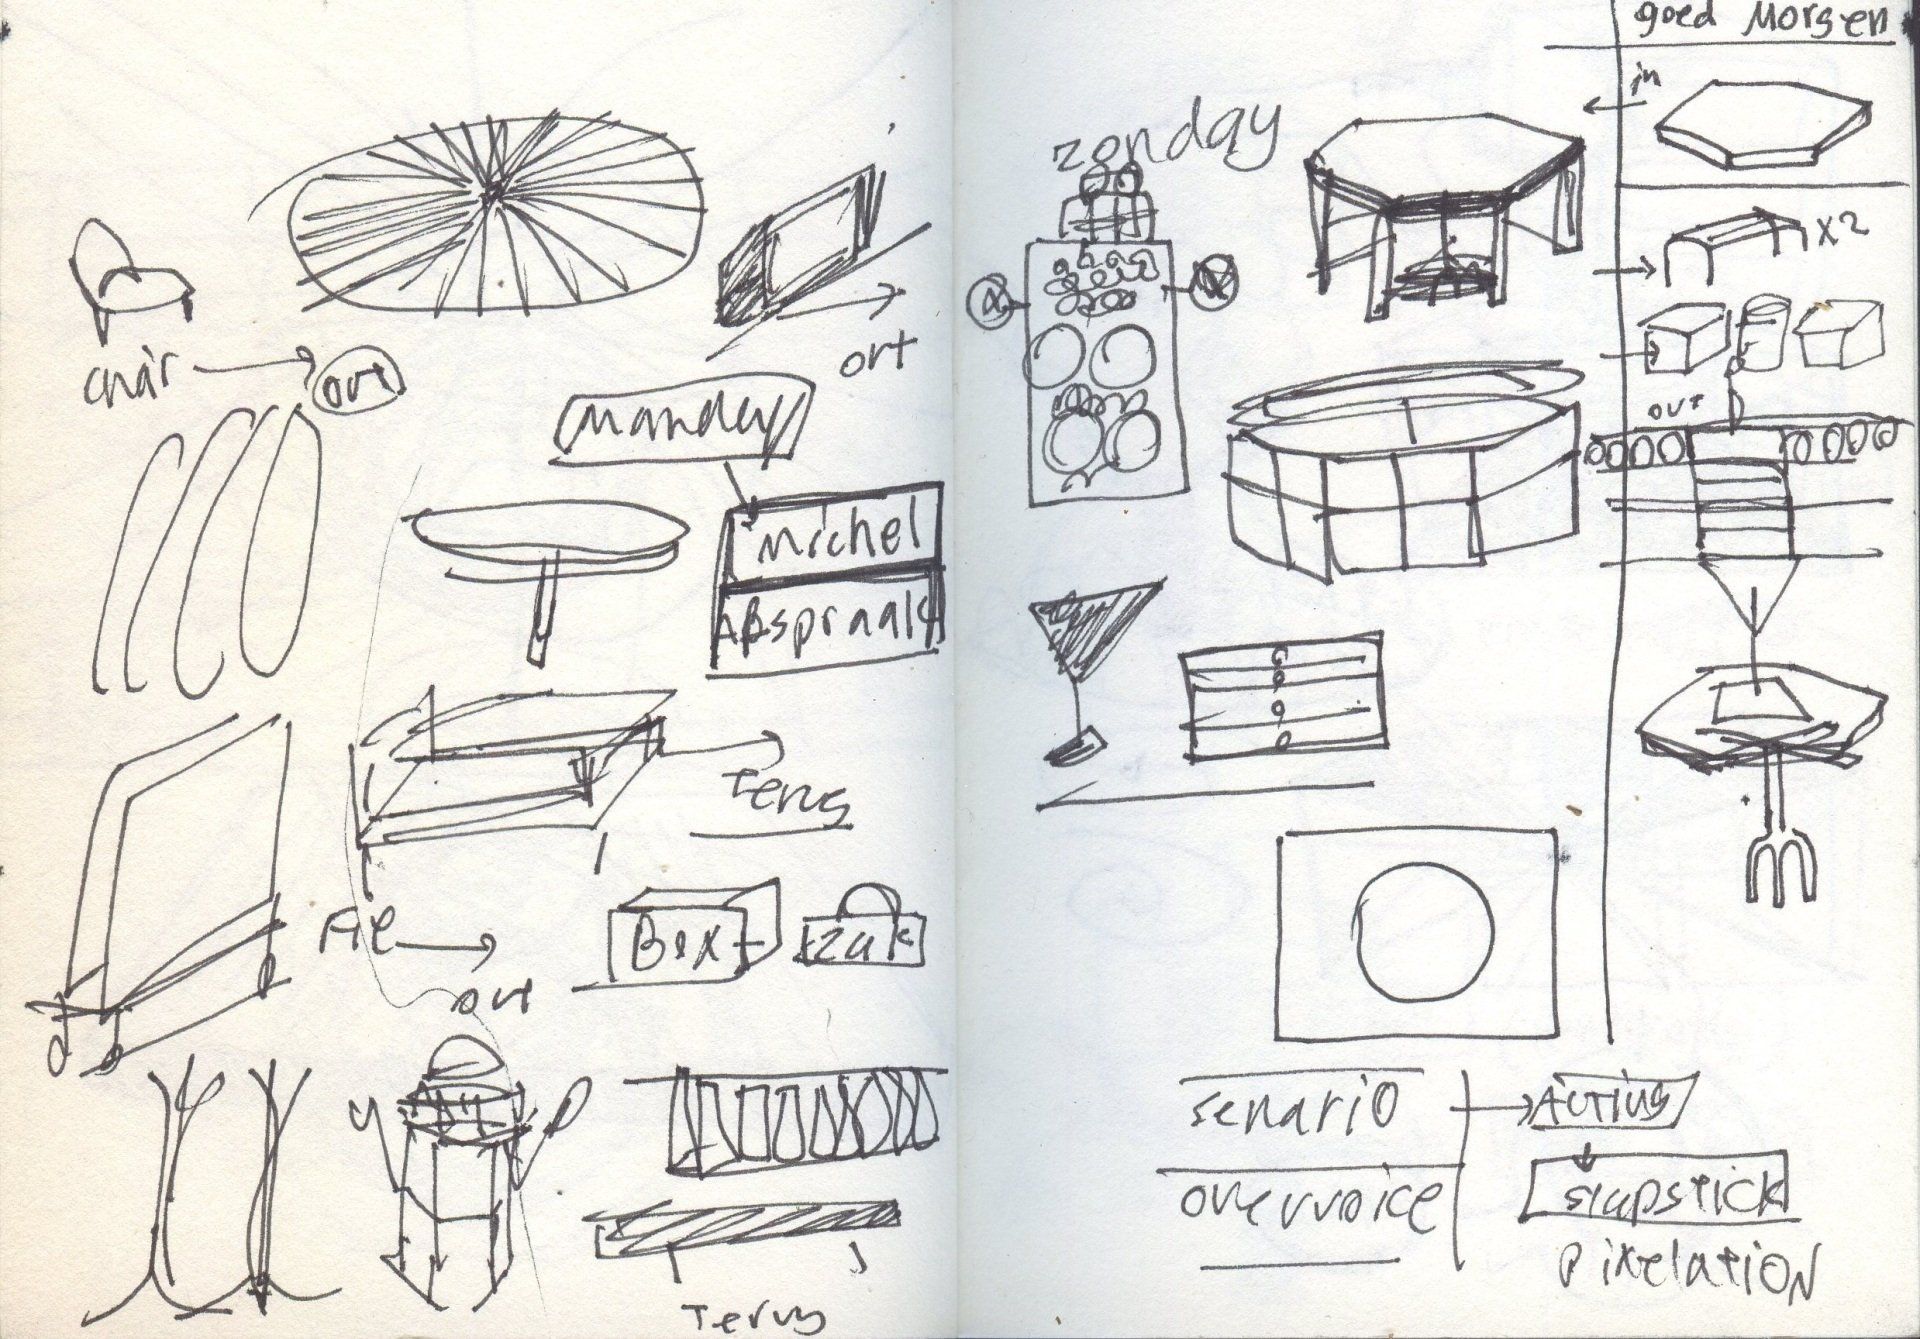 chair
out
ort
Manday
Michel
ABspraak
Terug
Box
zak
out
Terug
goed Morgen
in
zonday
x2
out
senario
Acting
overvoice
slapstick
pixelation